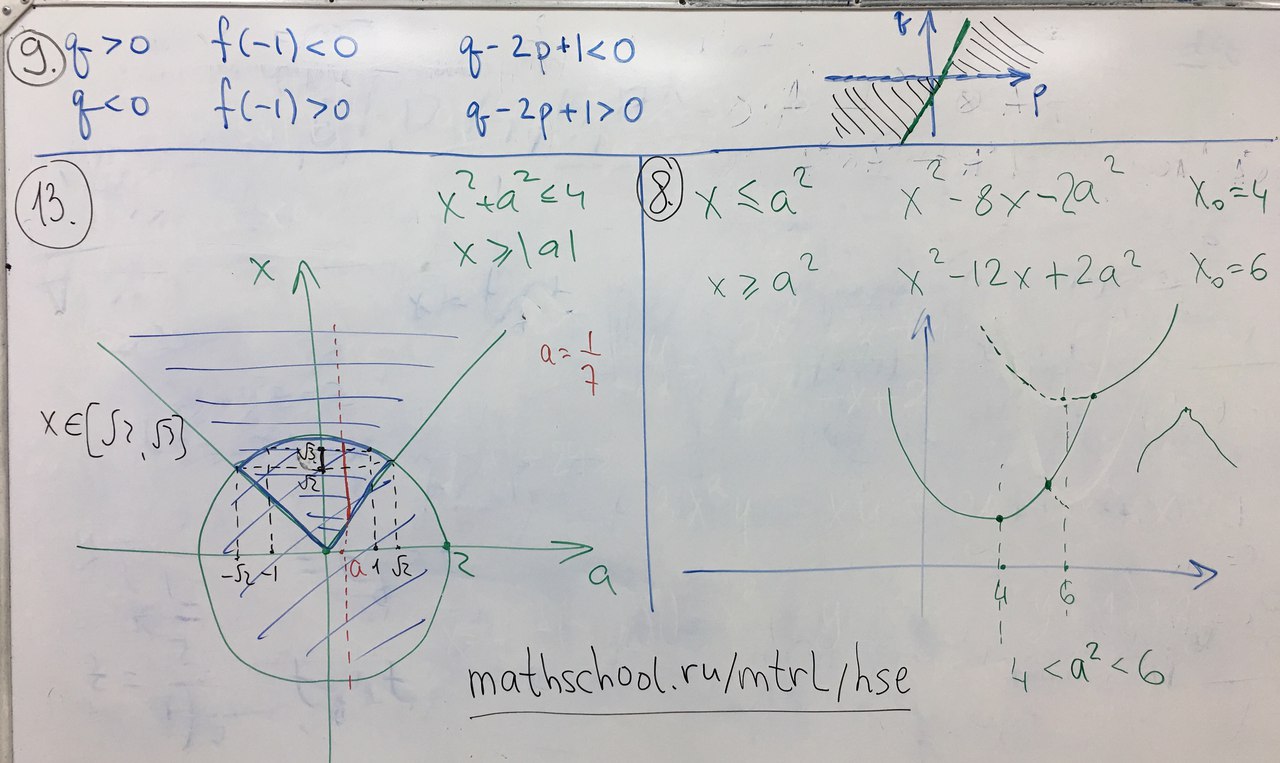 9. q > 0 f(-1) < 0 q - 2p + 1 < 0
q < 0 f(-1) > 0 q - 2p + 1 > 0
q
p
13.
x² + a² ≤ 4
x ⩾ |a|
x
a = 1/7
x ∈ [√2, √3]
√3
√2
-√2 -1 a 1 √2 2
a
8. x ≤ a² x² - 8x - 2a² x₀ = 4
x ⩾ a² x² - 12x + 2a² x₀ = 6
4 6
4 < a² < 6
mathschool.ru/mtrl/hse